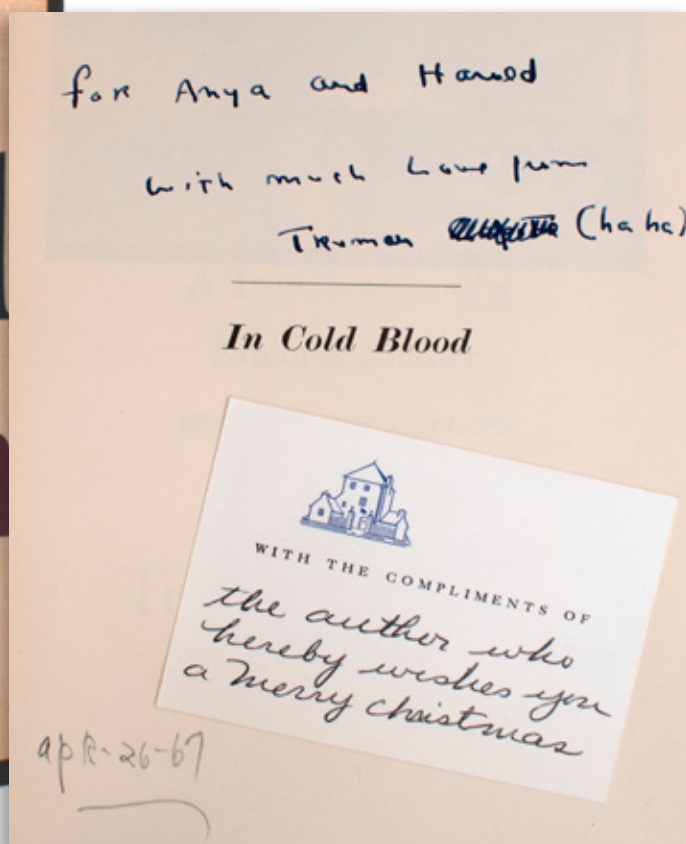 for Anya and Harold
with much love from
Truman (ha ha)
In Cold Blood
WITH THE COMPLIMENTS OF
the author who
hereby wishes you
a merry christmas
apR-26-67